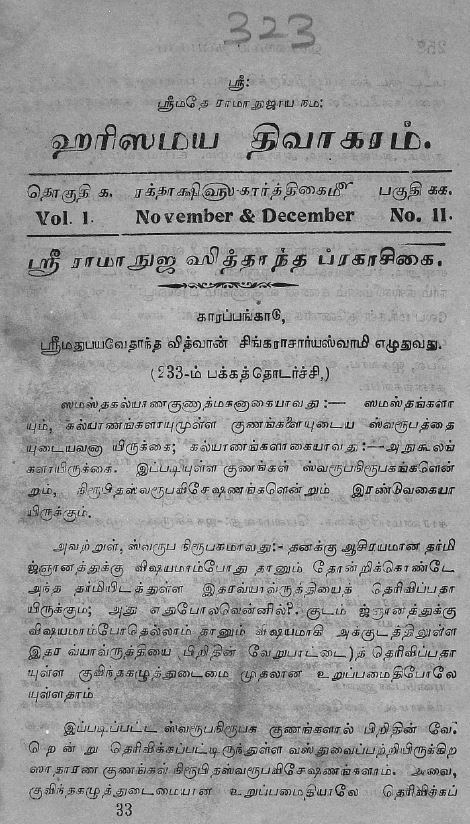 323
ஸ்ரீ:
ஸ்ரீமதே ராமாநுஜாய நம:
ஹரிஸமய திவாகரம்.
தொகுதி க. ரக்தாக்ஷிவருஷ-கார்த்திகைமீ பகுதி கக.
Vol. 1. November & December No. 11.
ஸ்ரீ ராமாநுஜ ஸித்தாந்த ப்ரகாசிகை.
காரப்பங்காடு,
ஸ்ரீமதுபயவேதாந்த வித்வான் சிங்கராசார்யஸ்வாமி எழுதுவது.
(233-ம் பக்கத்தொடர்ச்சி,)
ஸமஸ்தகல்யாணகுணாத்மகனாகையாவது:— ஸமஸ்தங்களா
யும், கல்யாணங்களாயுமுள்ள குணங்களையுடைய ஸ்வரூபத்தை
யுடையவனா யிருக்கை; கல்யாணங்களாகையாவது:—அநுகூலங்
களாயிருக்கை. இப்படியுள்ள குணங்கள் ஸ்வரூபநிரூபகங்களென்
றும், நிரூபிதஸ்வரூபவிசேஷணங்களென்றும் இரண்டுவகையா
யிருக்கும்.
அவற்றுள், ஸ்வரூப நிரூபகமாவது:- தனக்கு ஆசிரயமான தர்மி
ஜ்ஞானத்துக்கு விஷயமாம்போது தானும் தோன்றிக்கொண்டே
அந்த தர்மியிடத்துள்ள இதரவ்யாவ்ருத்தியைத் தெரிவிப்பதா
யிருக்கும்; அது எதுபோலவென்னில்?. குடம் ஜ்ஞானத்துக்கு
விஷயமாம்போதெல்லாம் தானும் விஷயமாகி அக்குடத்திலுள்ள
இதர வ்யாவ்ருத்தியை பிறிதின் வேறுபாட்டை)த் தெரிவிப்பதா
யுள்ள குவிந்தகழுத்துடைமை முதலான உறுப்பமைதிபோலே
யுள்ளதாம்
இப்படிப்பட்ட ஸ்வரூபநிரூபக குணங்களால் பிறிதின் வே.
றென்று தெரிவிக்கப்பட்டிருந்துள்ள வஸ்துவைப்பற்றியிருக்கிற
ஸாதாரண குணங்கள் நிரூபிதஸ்வரூபவிசேஷணங்களாம். அவை,
குவிந்தகழுத்துடைமையான உறுப்பமைதியாலே தெரிவிக்கப்
33